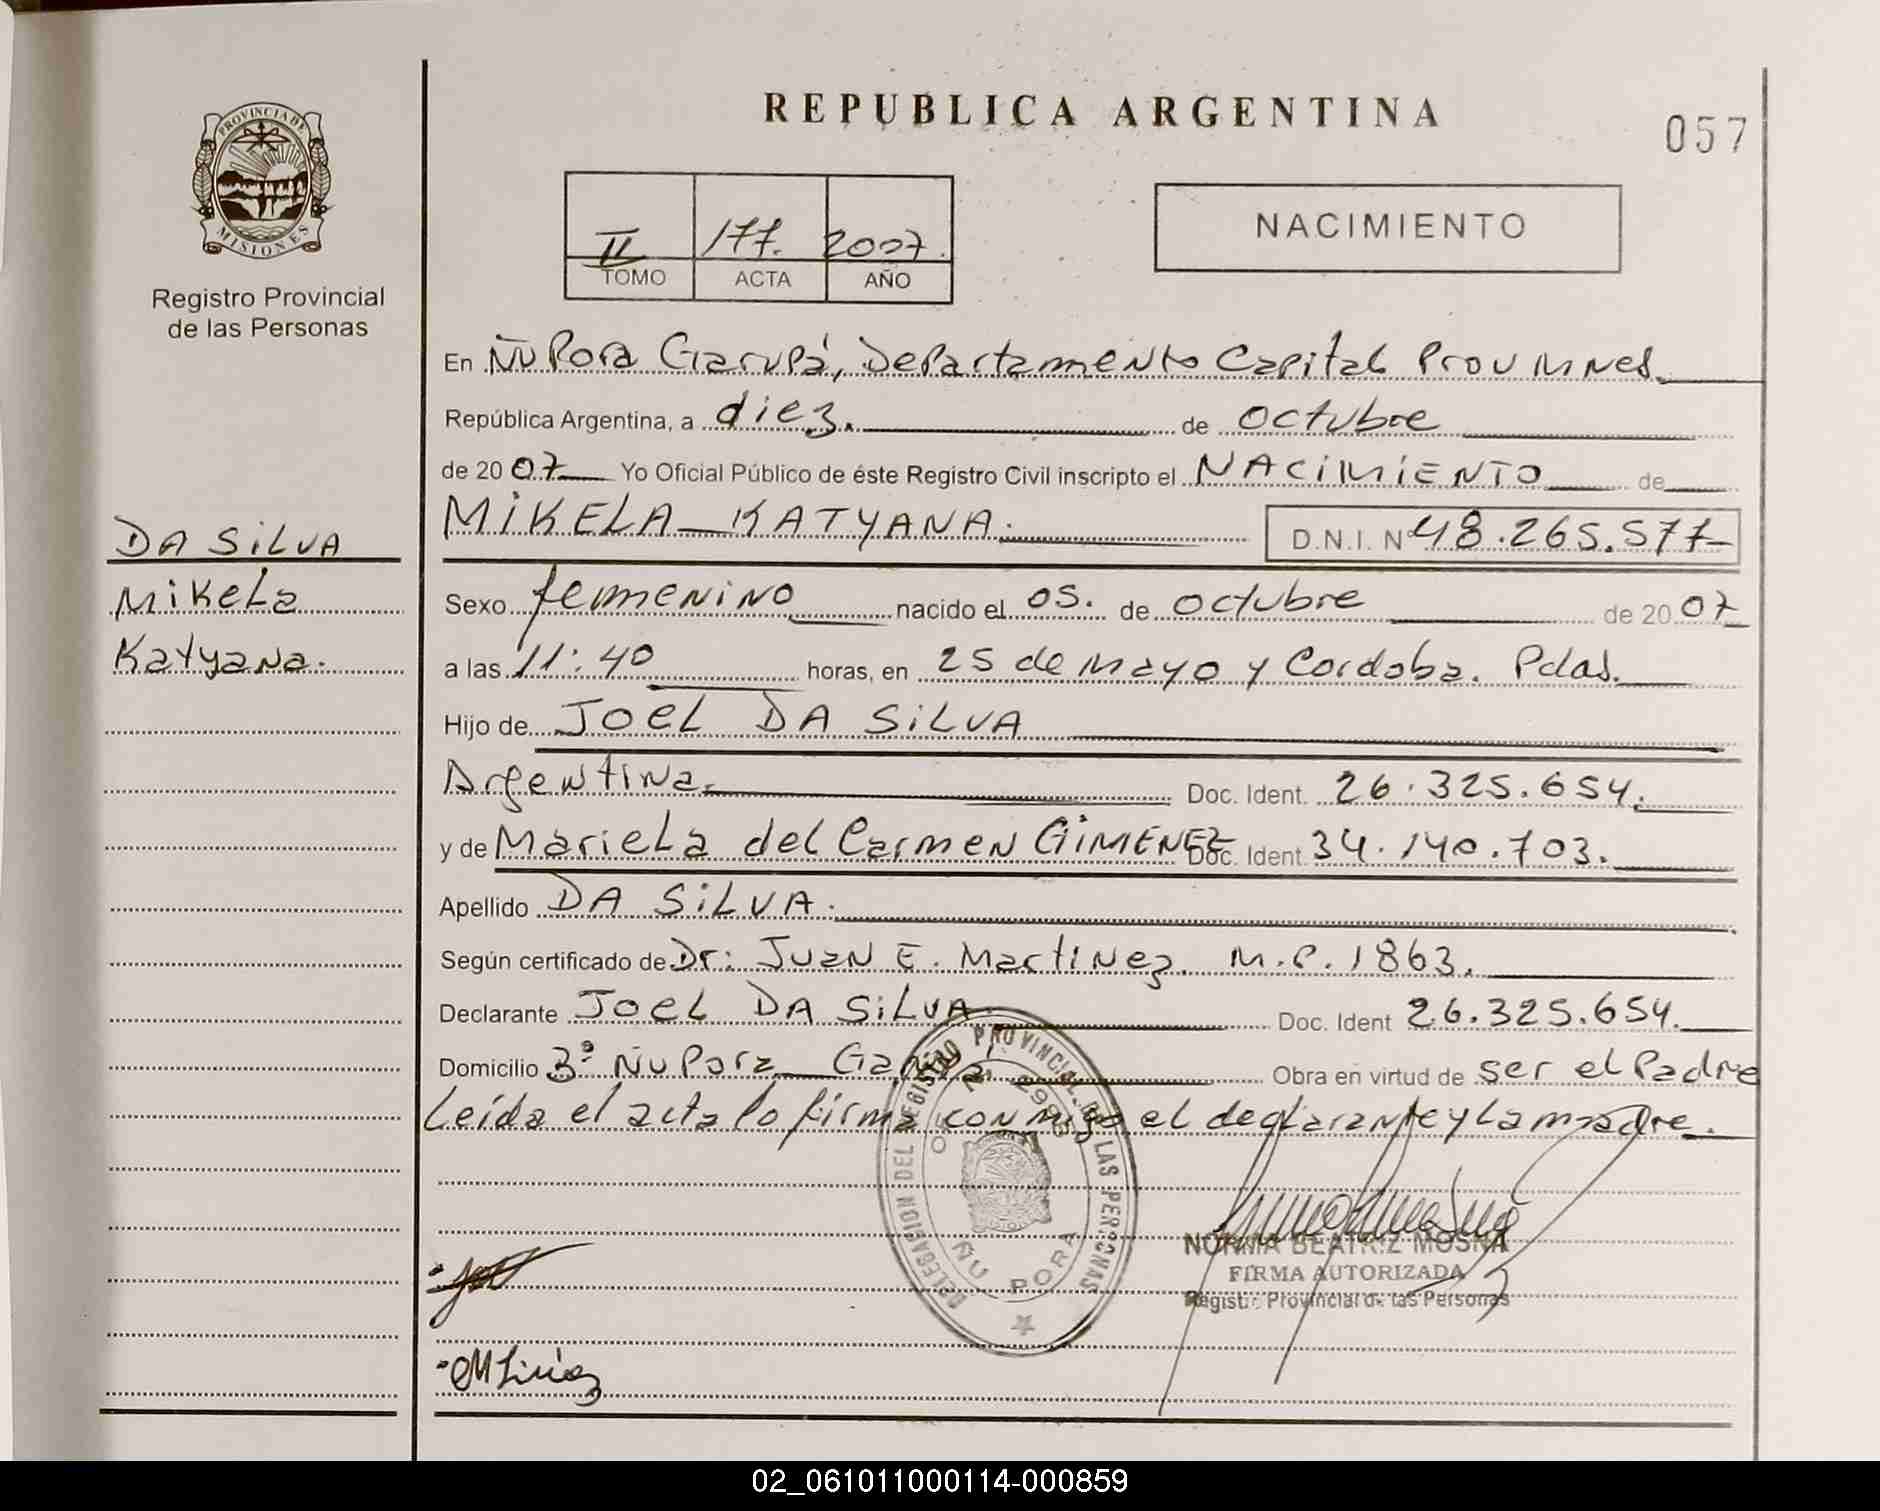 REPUBLICA ARGENTINA
057
PROVINCIA DE
MISIONES
Registro Provincial
de las Personas
NACIMIENTO
II 177. 2007.
TOMO ACTA AÑO
En Ñu Porá Garupá, Departamento Capital Prov Mnes.
República Argentina, a diez. de octubre
de 2007 Yo Oficial Público de éste Registro Civil inscripto el NACIMIENTO de
MIKELA KATYANA. D.N.I. Nº 48.265.577
DA SILVA
Mikela
Katyana.
Sexo femenino nacido el 05. de octubre de 2007
a las 11:40 horas, en 25 de Mayo y Cordoba. Pdas.
Hijo de JOEL DA SILVA
Argentina. Doc. Ident. 26.325.654.
y de Mariela del Carmen GIMENEZ Doc. Ident. 34.140.703.
Apellido DA SILVA.
Según certificado de Dr: Juan E. Martinez. M.P. 1863.
Declarante JOEL DA SILVA. Doc. Ident 26.325.654.
Domicilio 3º Ñu Pora Garupá Obra en virtud de ser el Padre
Leida el acta lo firma conmigo el declarante y la madre.
DELEGACION DEL REGISTRO PROVINCIAL DE LAS PERSONAS
ÑU PORA
NORMA BEATRIZ MOSNA
FIRMA AUTORIZADA
Registro Provincial de las Personas
02_061011000114-000859